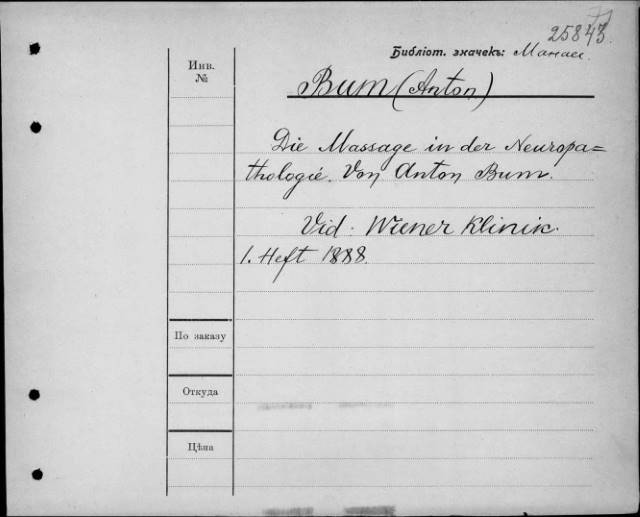 25843
Библіот. значекъ: Манас.
Инв.
№
Bum (Anton)
Die Massage in der Neuropa=
thologie. Von Anton Bum.
Vid. Wiener Klinik.
1. Heft 1888.
По заказу
Откуда
Цѣна